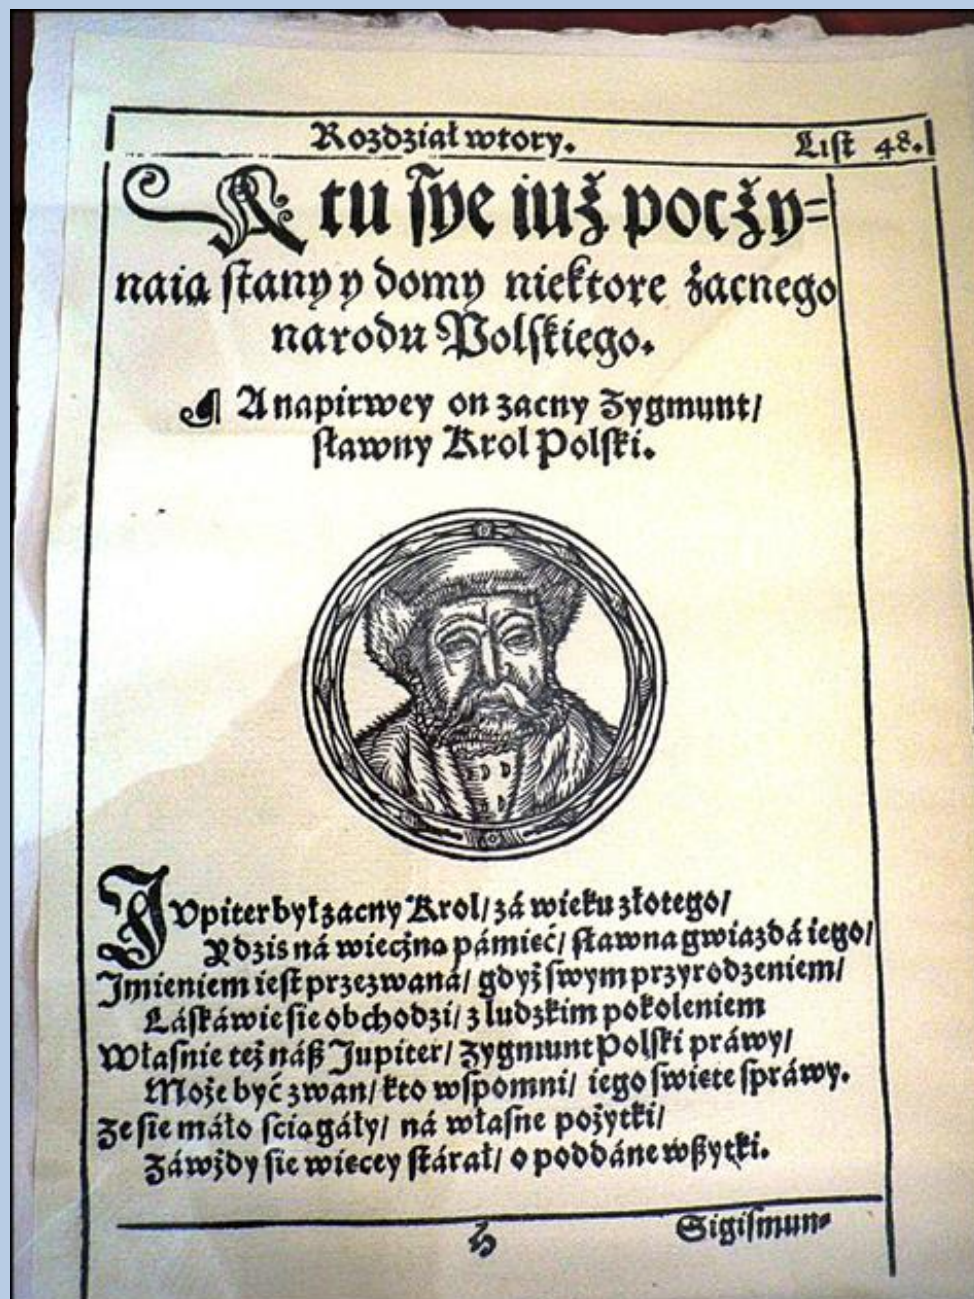 Rozdział wtory. List 48.
A tu ſye iuż pocży⸗
naią ſtany y domy niektore zacnego
narodu Polſkiego.
¶ A napirwey on zacny Zygmunt/
ſławny Krol Polſki.
JVpiter był zacny Krol/ zá wieku złotego/
Y dzis ná wieczną pámięć/ ſławna gwiazdá iego/
Jmieniem ieſt przezwaná/ gdyż ſwym przyrodzeniem/
Láſkáwie ſie obchodzi/ z ludzkim pokoleniem
Właſnie też náß Jupiter/ Zygmunt Polſki práwy/
Może być zwan/ kto wſpomni/ iego ſwięte ſpráwy.
Ze ſie máło ſciągáły/ ná właſne pożytki/
Záwżdy ſie więcey ſtárał/ o poddáne wßytki.
h Sigiſmun⸗